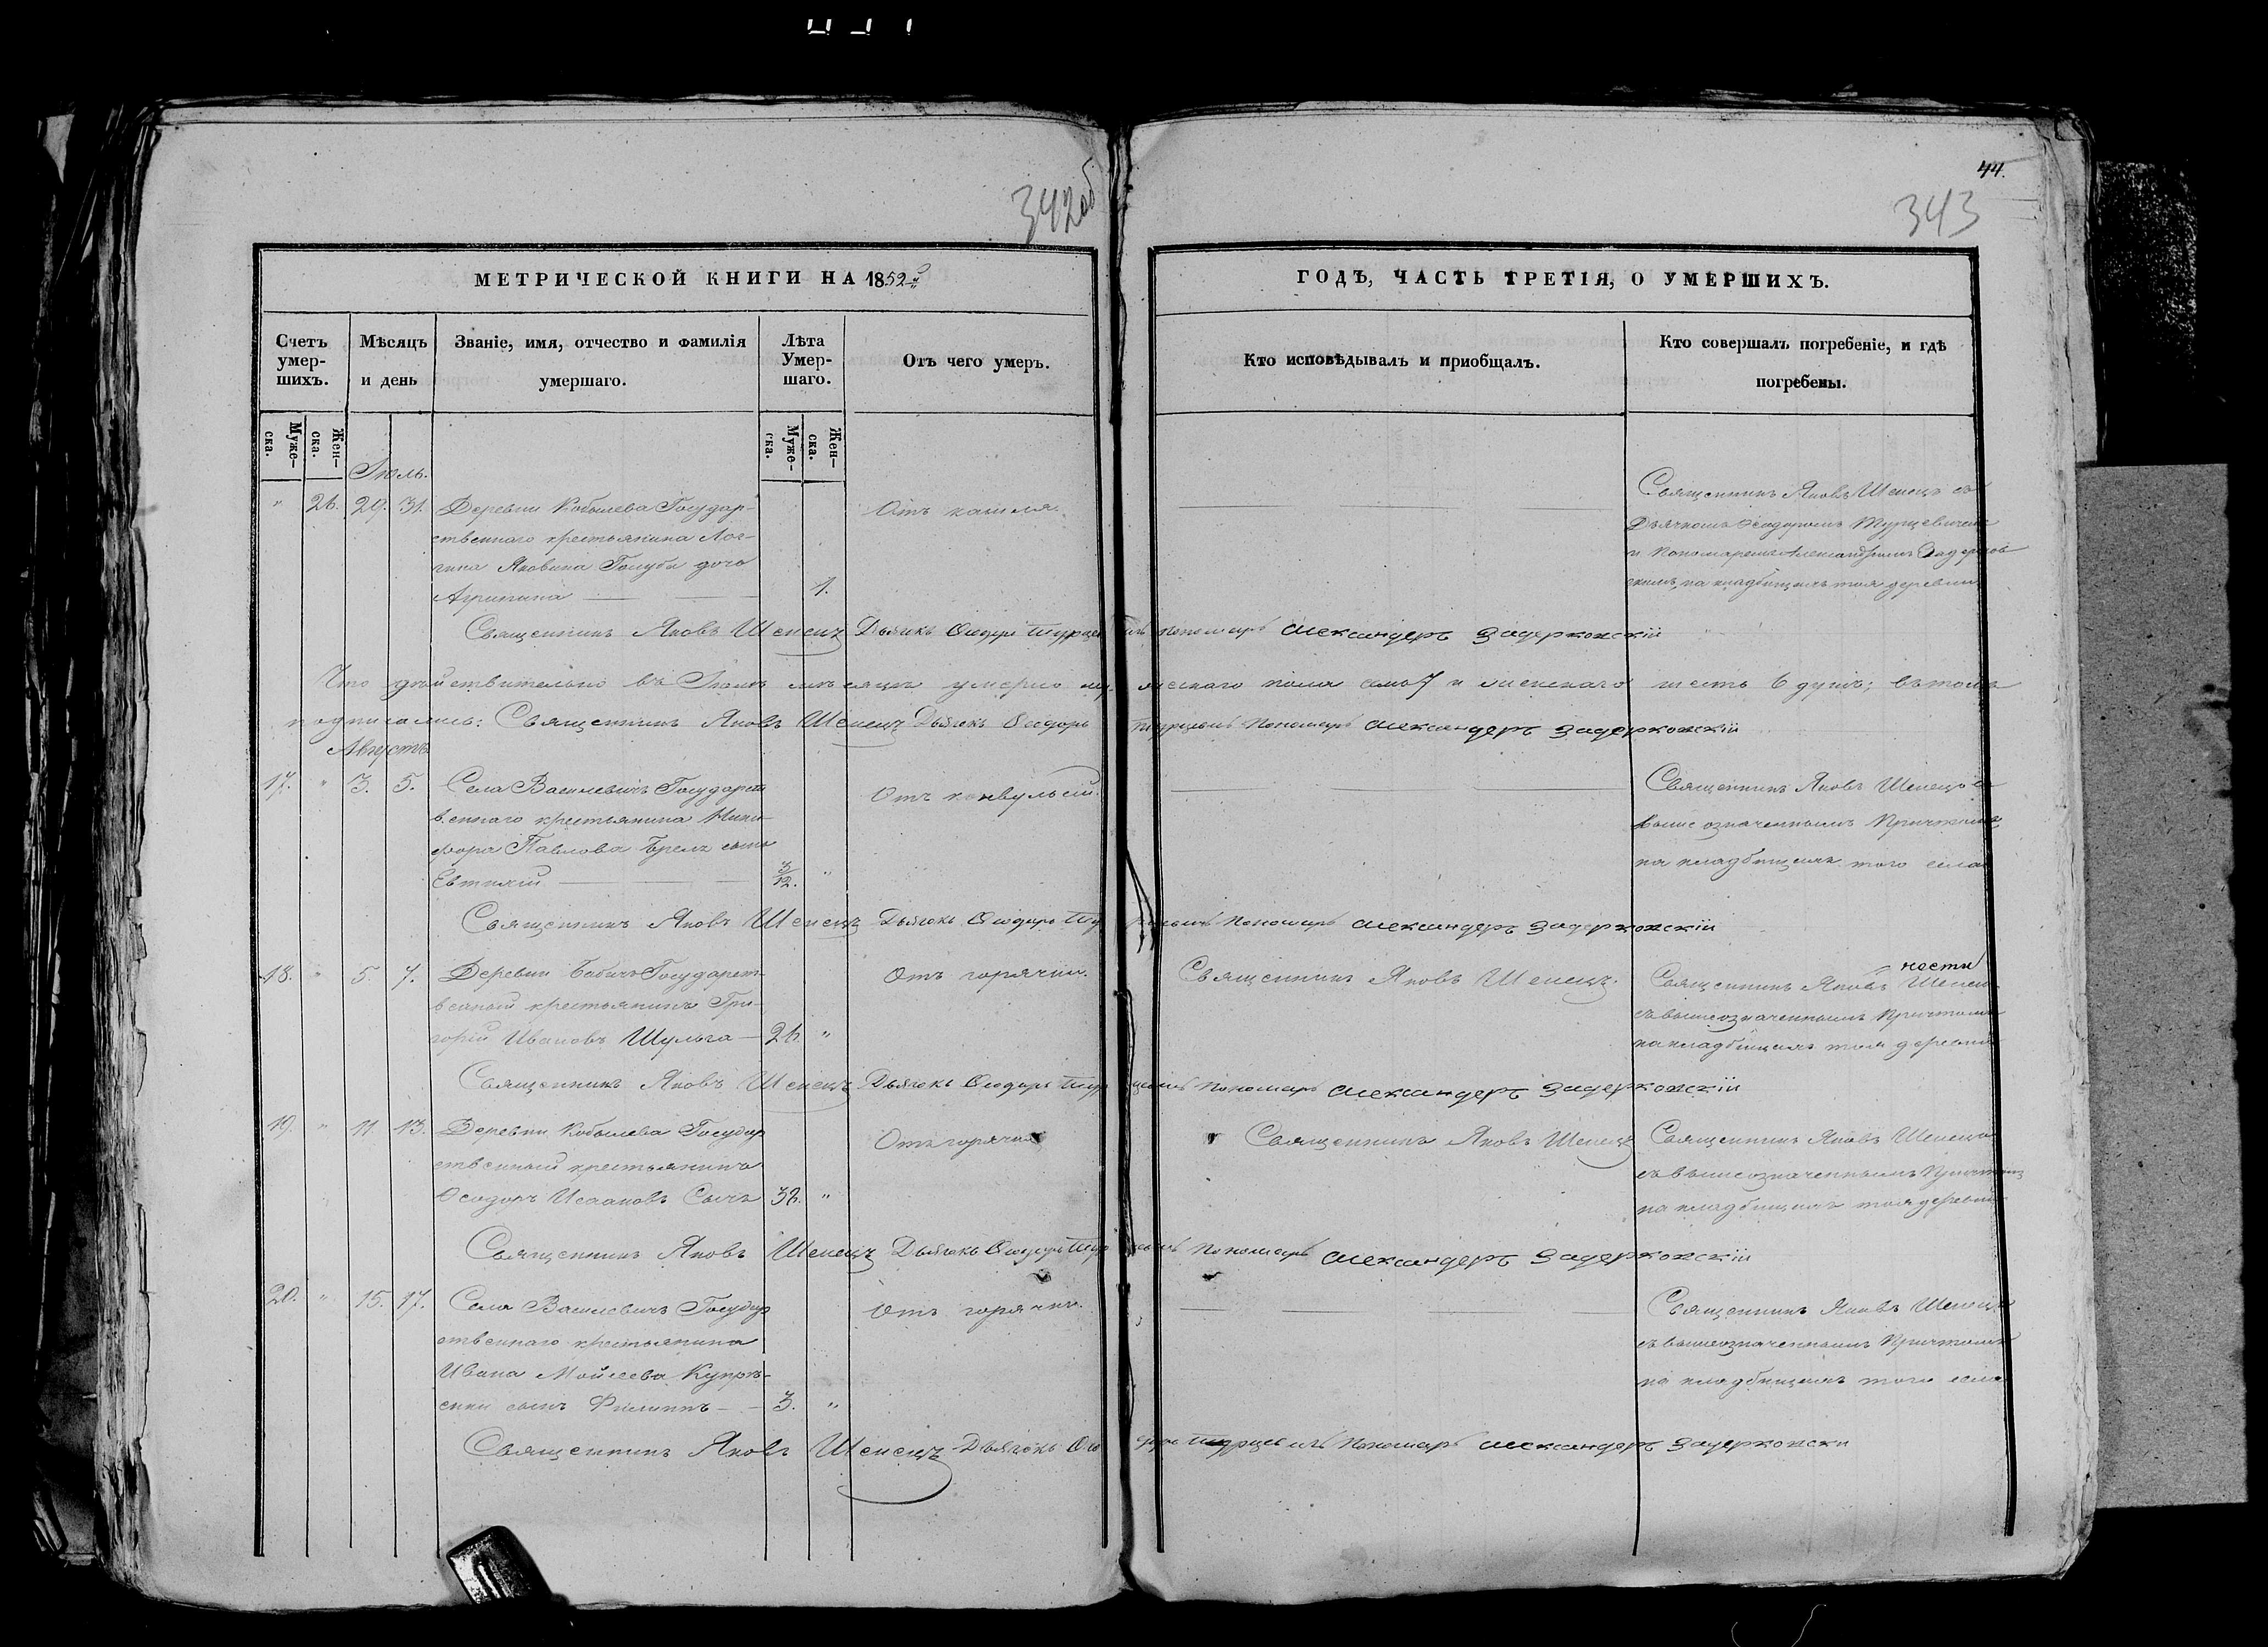 342об
44.
343
МЕТРИЧЕСКОЙ КНИГИ НА 1852й
ГОДЪ, ЧАСТЬ ТРЕТІЯ, О УМЕРШИХЪ.
Счетъ умер-шихъ.
Мѣсяцъ и день
Званіе, имя, отчество и фамилія умершаго.
Лѣта Умер-шаго.
Отъ чего умеръ.
Кто исповѣдывалъ и приобщалъ.
Кто совершалъ погребеніе, и гдѣ погребены.
Муже-ска.
Жен-ска.
Муже-ска.
Жен-ска.
Іюль.
" 26. 29. 31. Деревни Кобылева Государ-
ственнаго крестьянина Лог-
гина Яковина Голуба дочь
Агрипина 1.
Отъ кашля.
Священникъ Яковъ Шепецъ съ
Дьячкомъ Ѳеодоромъ Турцевичемъ
и Пономаремъ Александромъ Задерков
скимъ, на кладбищахъ тоя деревни
Священникъ Яковъ Шепецъ Дьячокъ Ѳеодоръ Турцевичъ Пономарь Александеръ Задерковскій
Что дѣйствительно въ Іюлѣ мѣсяцѣ умерло му-жескаго пола семь 7 и женскаго шесть 6 душъ; въ томъ
подписались: Священникъ Яковъ Шепецъ Дьячокъ Ѳеодоръ Турцевичъ Пономарь Александеръ Задерковскій
Августъ
17. " 3. 5. Села Василевичъ Государст
веннаго крестьянина Ники-
фора Павлова Брель сынъ
Евтихій 3/12. "
Отъ конвульсіи.
Священникъ Яковъ Шепецъ съ
выше означеннымъ Причтомъ
на кладбищахъ того села
Священникъ Яковъ Шепецъ Дьячокъ Ѳеодоръ Турцевичъ Пономарь Александеръ Задерковскій
18. " 5. 7. Деревни Бабичъ Государст-
венный крестьянинъ Гри-
горій Ивановъ Шульга 26. "
Отъ горячки.
Священникъ Яковъ Шепецъ.
Священникъ Яковъ Шепецъ
съ вышеозначеннымъ Причтомъ
на кладбищахъ тоя деревни
Священникъ Яковъ Шепецъ Дьячокъ Ѳеодоръ Турцевичъ Пономарь Александеръ Задерковскій
19. " 11. 13. Деревни Кобылева Государ
ственный крестьянинъ
Ѳеодоръ Исааковъ Сычъ 32. "
Отъ горячки
Священникъ Яковъ Шепецъ
Священникъ Яковъ Шепецъ
съ вышеозначеннымъ Причтомъ
на кладбищахъ тоя деревни
Священникъ Яковъ Шепецъ Дьячокъ Ѳеодоръ Турцевичъ Пономарь Александеръ Задерковскій
20. " 15. 17. Села Василевичъ Государ
ственнаго крестьянина
Ивана Мойсеева Купрѣ-
енки сынъ Филиппъ 3. "
Отъ горячки.
Священникъ Яковъ Шепецъ
съ вышеозначеннымъ Причтомъ
на кладбищахъ того села
Священникъ Яковъ Шепецъ Дьячокъ Ѳеодоръ Турцевичъ Пономарь Александеръ Задерковски